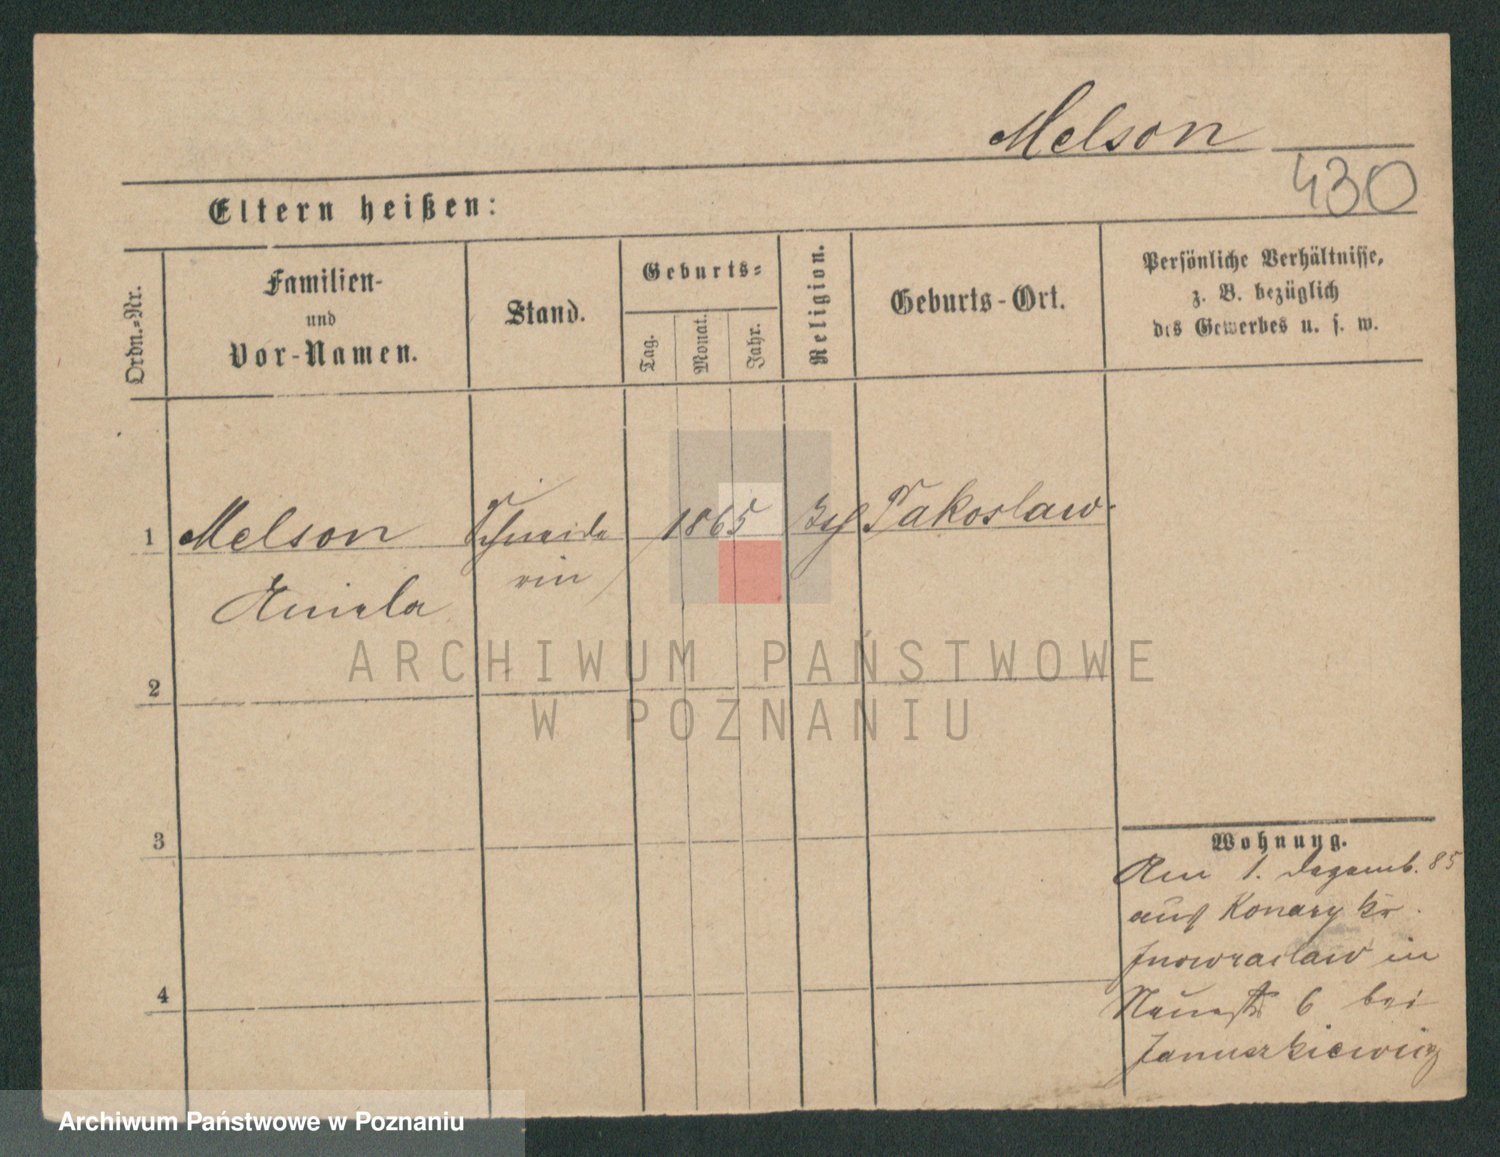 Melson
430
Eltern heißen:
Ordn.-Nr.
Familien-
und
Vor-Namen.
Stand.
Geburts-
Tag.
Monat.
Jahr.
Religion.
Geburts-Ort.
Persönliche Verhältnisse,
z. B. bezüglich
des Gewerbes u. s. w.
1 Melson Schneide 1865 Pakoslaw.
Aniela rin
2
3
4
Wohnung.
Am 1. Dezemb. 85
aus Konary Kr.
Inowraclaw in
6 bei
Januszkiewicz
ARCHIWUM PAŃSTWOWE
W POZNANIU
Archiwum Państwowe w Poznaniu